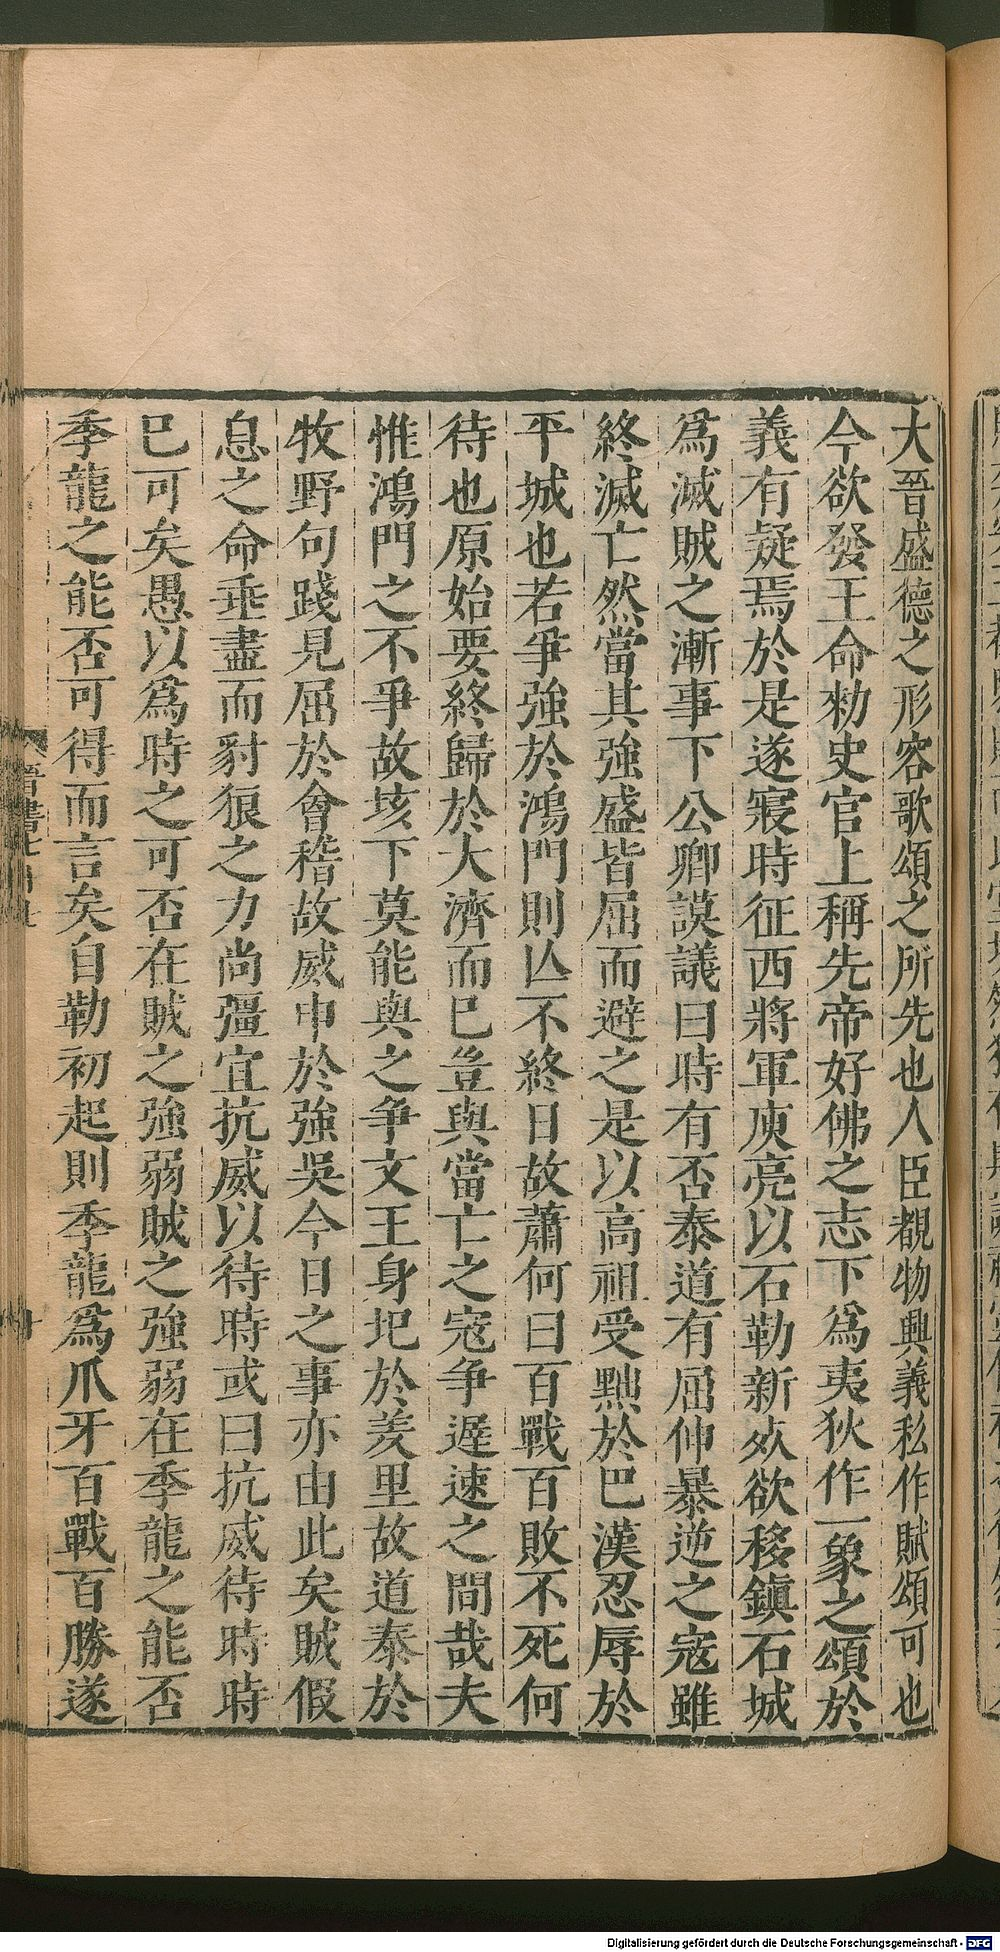 大晉盛德之形容歌頌之所先也人臣覩物興義私作賦頌可也
今欲發王命勑史官上稱先帝好佛之志下爲夷狄作一象之頌於
義有疑焉於是遂寢時征西將軍庾亮以石勒新𣦸欲移鎭石城
爲滅賊之漸事下公卿謨議曰時有否泰道有屈伸暴逆之寇雖
終滅亡然當其強盛皆屈而避之是以高祖受黜於巴漢忍辱於
平城也若爭強於鴻門則亾不終日故蕭何曰百戰百敗不死何
待也原始要終歸於大濟而巳豈與當亡之寇爭遲速之間哉夫
惟鴻門之不爭故垓下莫能與之争文王身圯於羑里故道泰於
牧野句踐見屈於會稽故威申於強吳今日之事亦由此矣賊假
息之命垂盡而豺狼之力尚彊宜抗威以待時或曰抗威待時時
巳可矣愚以爲時之可否在賊之強弱賊之強弱在季龍之能否
季龍之能否可得而言矣自勒初起則季龍爲爪牙百戰百勝遂
Digitalisierung gefördert durch die Deutsche Forschungsgemeinschaft - DFG